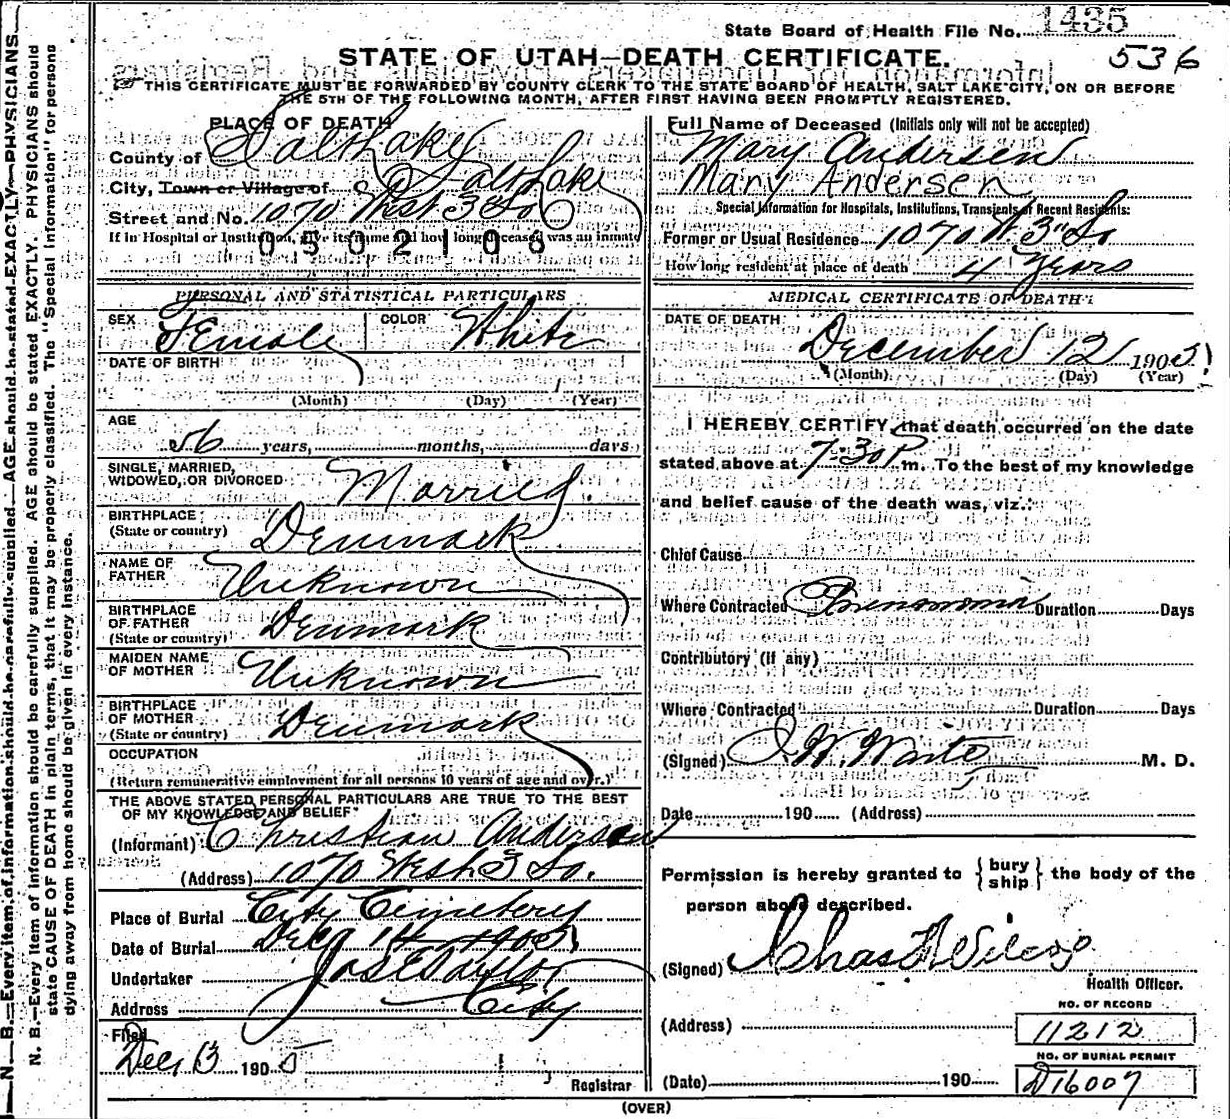 State Board of Health File No. 1435
536
STATE OF UTAH—DEATH CERTIFICATE.
THIS CERTIFICATE MUST BE FORWARDED BY COUNTY CLERK TO THE STATE BOARD OF HEALTH, SALT LAKE CITY, ON OR BEFORE
THE 5TH OF THE FOLLOWING MONTH, AFTER FIRST HAVING BEEN PROMPTLY REGISTERED.
PLACE OF DEATH
County of Salt Lake
City, Town or Village of Salt Lake
Street and No. 1070 West 3 So
If in Hospital or Institution, give its name and how long deceased was an inmate
Full Name of Deceased (Initials only will not be accepted)
Mary Andersen
Mary Andersen
Special Information for Hospitals, Institutions, Transients or Recent Residents:
Former or Usual Residence 1070 W 3" So
How long resident at place of death 4 Years
PERSONAL AND STATISTICAL PARTICULARS
SEX Female COLOR White
DATE OF BIRTH
(Month) (Day) (Year)
AGE
56 years, months, days
SINGLE, MARRIED,
WIDOWED, OR DIVORCED Married.
BIRTHPLACE
(State or country) Denmark
NAME OF
FATHER Unknown
BIRTHPLACE
OF FATHER
(State or country) Denmark
MAIDEN NAME
OF MOTHER Unknown
BIRTHPLACE
OF MOTHER
(State or country) Denmark
OCCUPATION
(Return remunerative employment for all persons 10 years of age and over.)
THE ABOVE STATED PERSONAL PARTICULARS ARE TRUE TO THE BEST
OF MY KNOWLEDGE AND BELIEF
(Informant) Christian Andersen
(Address) 1070 West 3 So.
Place of Burial City Cemetery
Date of Burial Dec 14 1905
Undertaker Jos E Taylor
Address City
Filed
Dec 13 1905
Registrar
MEDICAL CERTIFICATE OF DEATH
DATE OF DEATH
December 12 1905
(Month) (Day) (Year)
I HEREBY CERTIFY, that death occurred on the date
stated above at 7:30 P m. To the best of my knowledge
and belief cause of the death was, viz.:
Chief Cause
Where Contracted Pneumonia Duration Days
Contributory (if any)
Where Contracted Duration Days
(Signed) M. D.
Date 190 (Address)
Permission is hereby granted to {bury
ship} the body of the
person above described.
(Signed)
Health Officer.
NO. OF RECORD
(Address) 11212
NO. OF BURIAL PERMIT
(Date) 190 D16007
(OVER)
N. B.—Every item of information should be carefully supplied. AGE should be stated EXACTLY. PHYSICIANS
N. B.—Every item of information should be carefully supplied. AGE should be stated EXACTLY. PHYSICIANS should
state CAUSE OF DEATH in plain terms, that it may be properly classified. The "Special Information" for persons
dying away from home should be given in every instance.